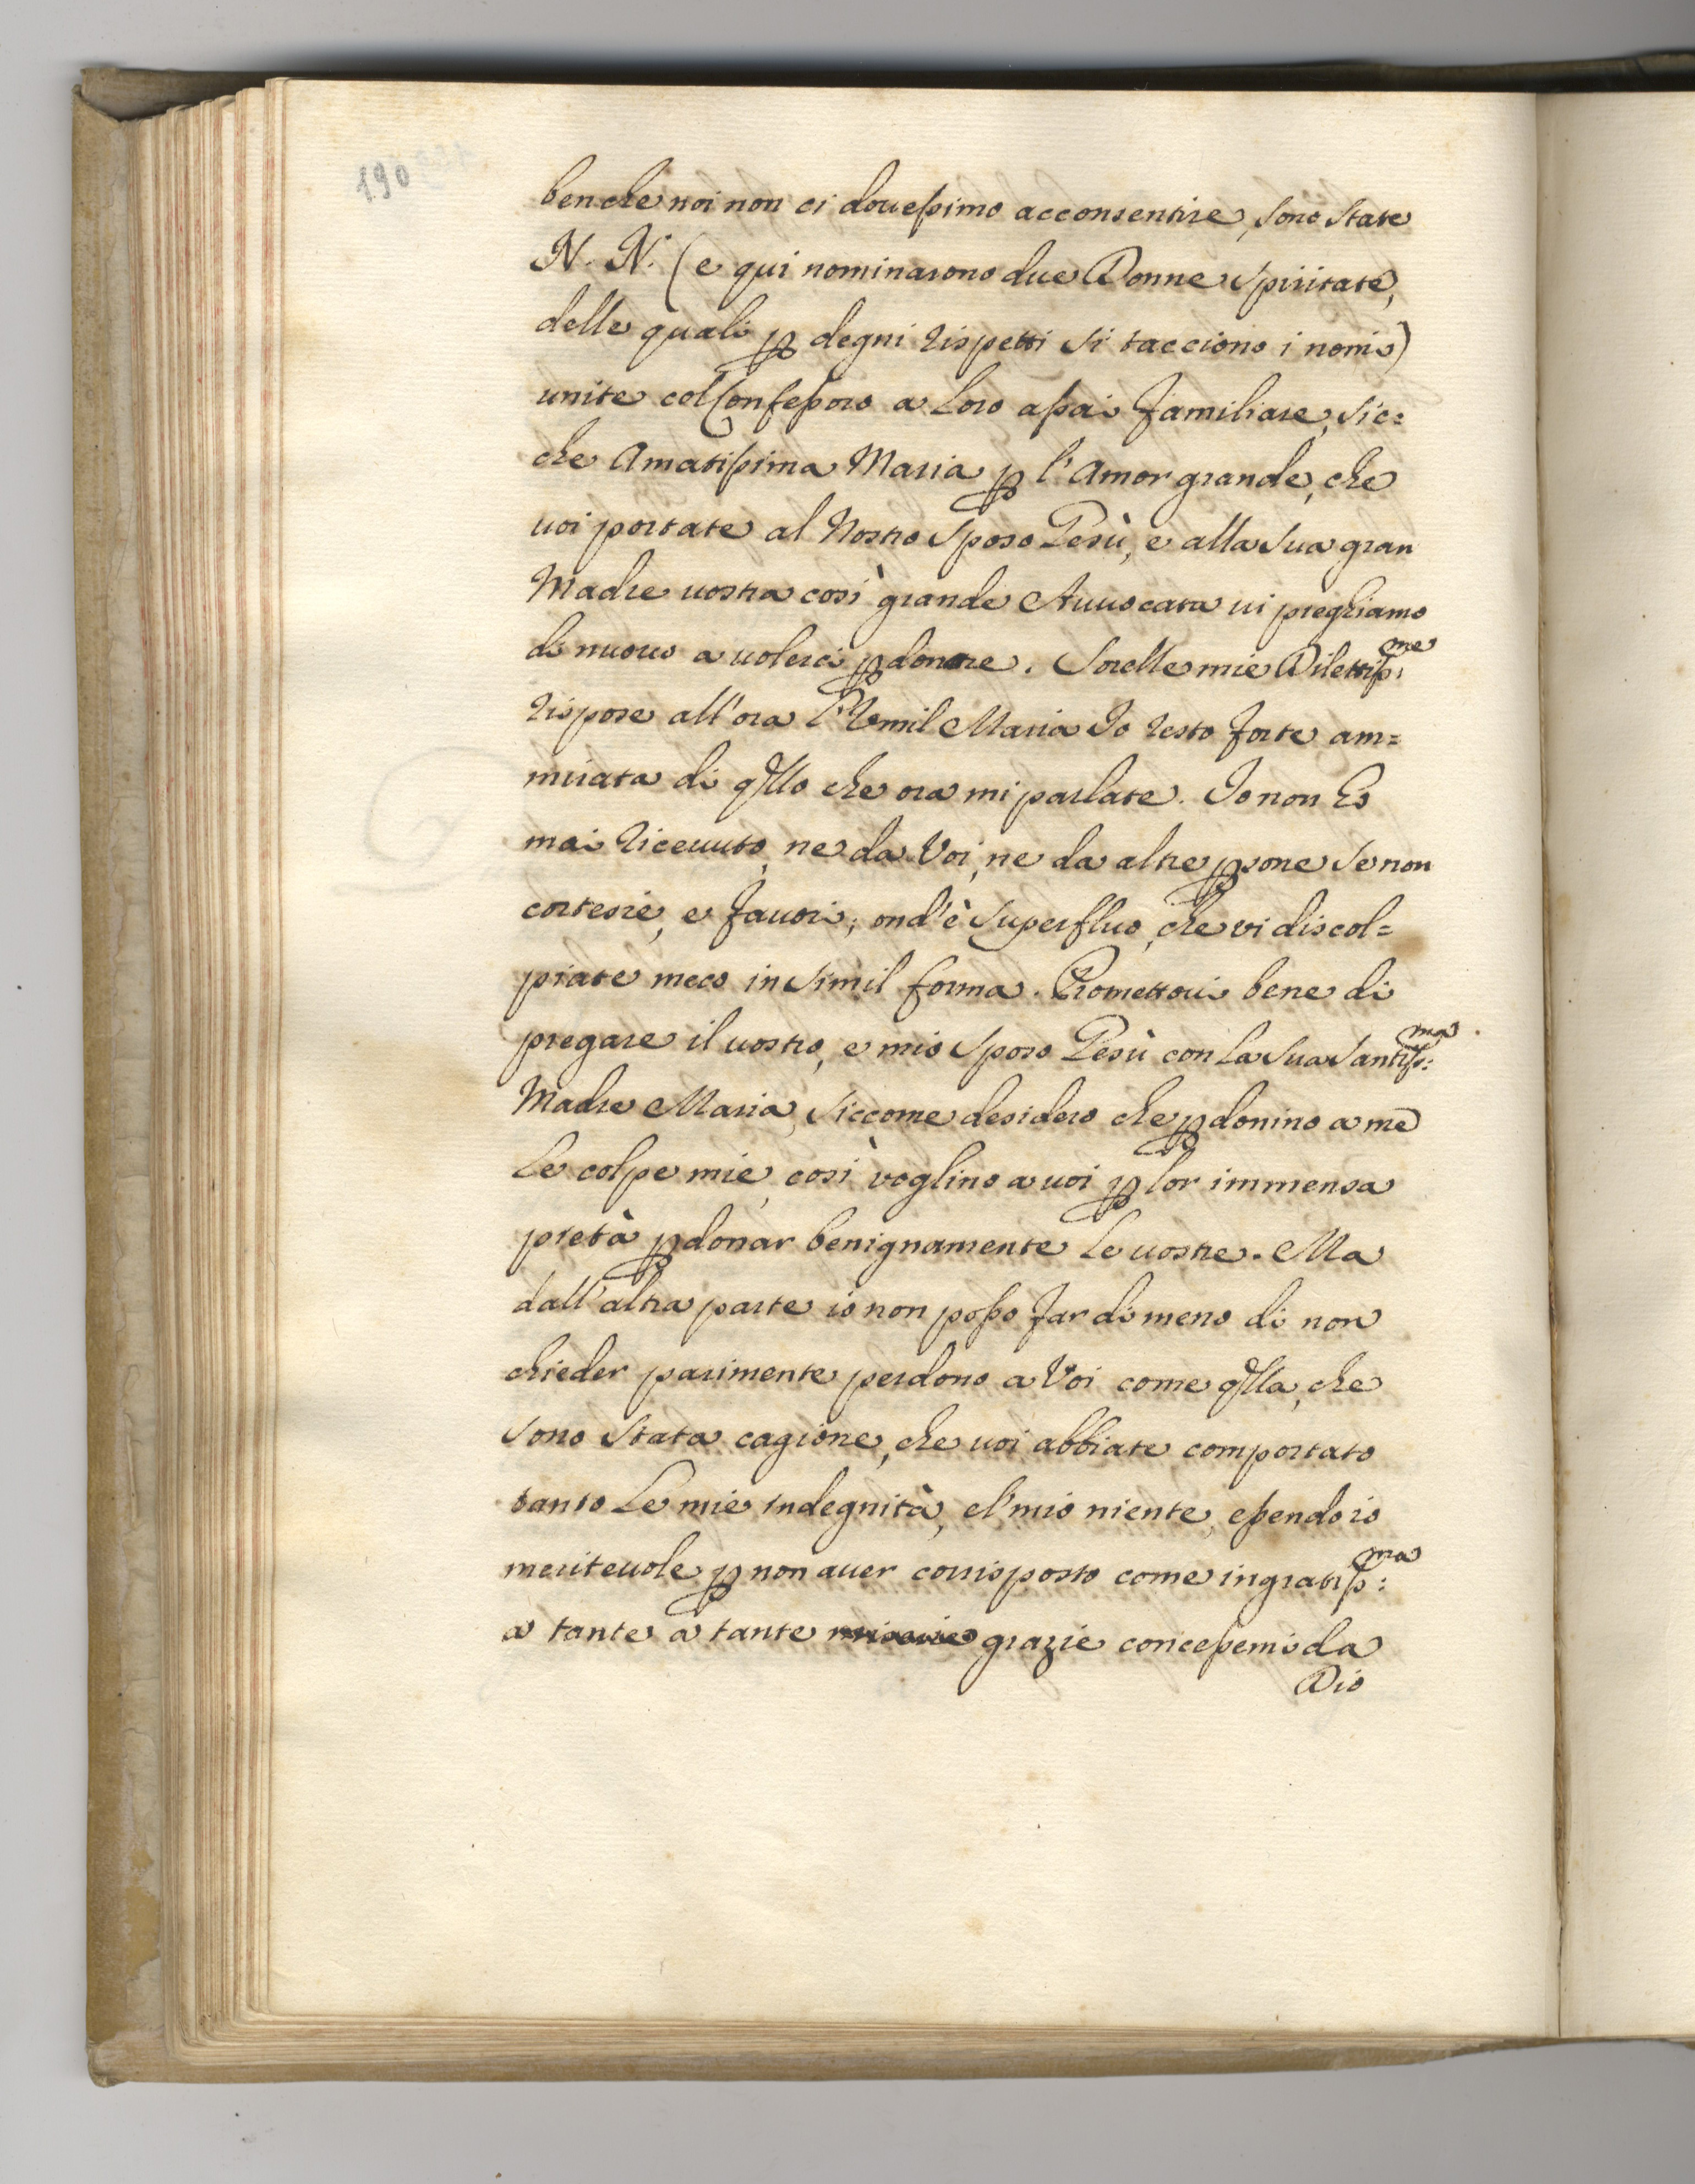 190
benche noi non ci douessimo acconsentire, sono state
N. N. (e qui nominarono due Donne spiritate,
delle quali ꝑ degni rispetti si tacciono i nomi)
unite col Confessoro a loro assai familiare, sic=
che Amatissima Maria ꝑ l'Amor grande, che
uoi portate al Nostro Sposo Gesù, e alla sua gran
Madre uostra così grande Auuocata ui preghiamo
di nuouo a uolerci ꝑdonare. Sorelle mie Dilettiss:me
rispose all'ora l'Umil Maria Io resto forte am=
mirata di qllo che ora mi parlate. Io non ho
mai riceuuto, ne da Voi, ne da altre ꝑsone se non
cortesie, e fauori; ond'è superfluo, che vi discol=
piate meco in simil forma. Promettoui bene di
pregare il uostro, e mio Sposo Gesù con la sua Santiss:ma
Madre Maria, siccome desidero che ꝑdonino a me
le colpe mie, così voglino a uoi ꝑ lor immensa
pietà ꝑdonar benignamente le uostre. Ma
dall'altra parte io non posso far di meno di non
chieder parimente perdono a Voi come qlla, che
sono stata cagione, che uoi abbiate comportato
tanto le mie indegnità, e l'mio niente, essendo io
meriteuole ꝑ non auer corrisposto come ingratiss:ma
a tante a tante grazie concessemi da
Dio